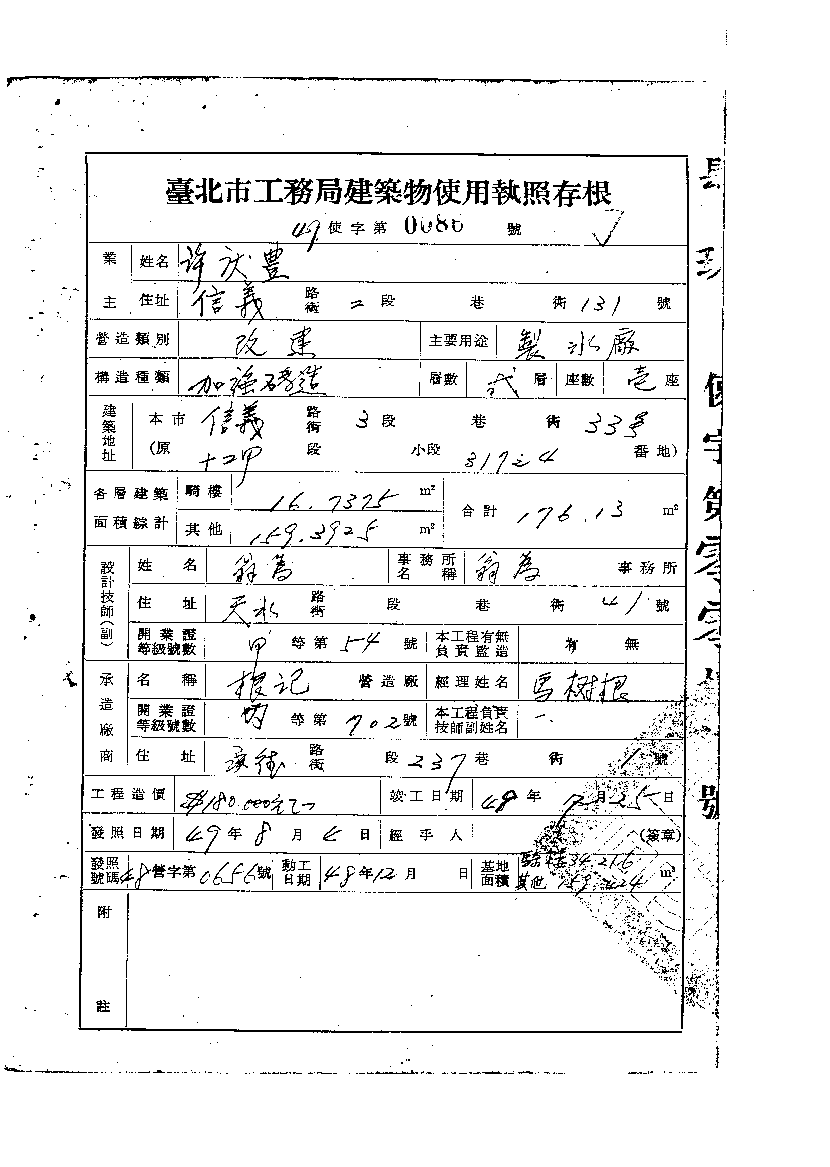 臺北市工務局建築物使用執照存根
49使字第0086號
業主 姓名 許 豐
住址 信義 路街 二 段 巷 衖 131 號
營造類別 改建 主要用途 製冰廠
構造種類 加強磚造 層數 弍 層 座數 壱 座
建築地址 本市 信義 路街 3 段 巷 衖 33號
(原 十二甲 段 小段 317之4 番地)
各層建築面積綜計 騎樓 16.7375 m² 合計 176.13 m²
其他 159.3925 m²
設計技師(副) 姓名 翁為 事務所名稱 翁為 事務所
住址 天水 路街 段 巷 衖 41 號
開業證等級號數 甲 等第 54 號 本工程有無負責監造 有 無
承造廠商 名稱 根記 營造廠 經理姓名 馬樹根
開業證等級號數 丙 等第 702 號 本工程負責技師副姓名
住址 承德 路街 段 237 巷 衖 1 號
工程造價 180.000元 竣工日期 49 年 7 月 25 日
發照日期 49 年 8 月 日 經手人 (簽章)
發照號碼 48營字第0656號 動工日期 48年12月 日 基地面積 騎樓34.216 其他 159.424 m²
附註
使字第零零 號